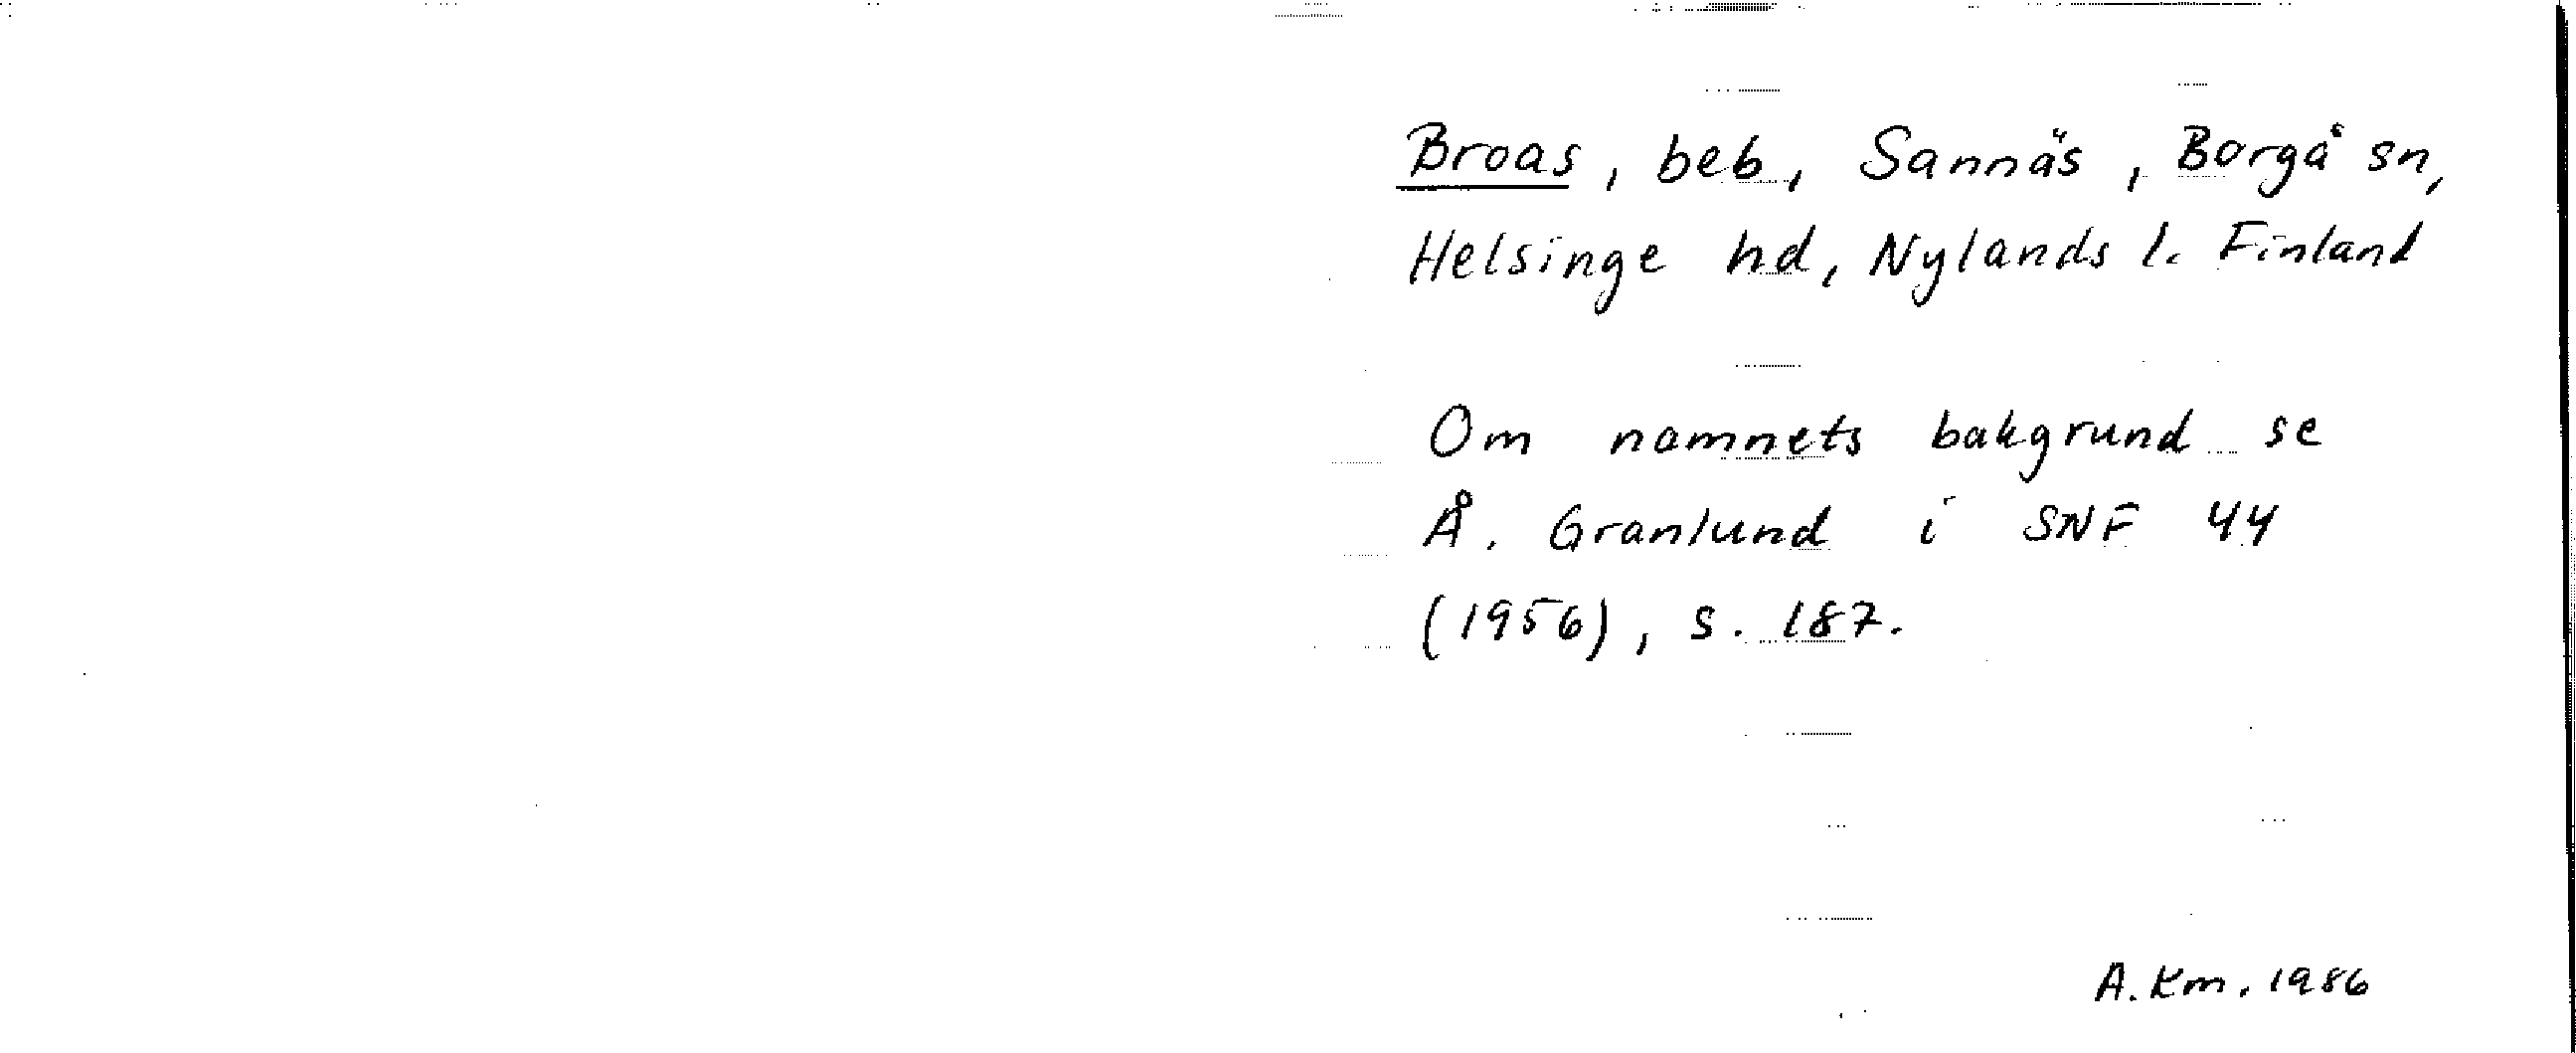 Broas, beb, Sannäs, Borgå sn,
Helsinge hd, Nylands l. Finland
Om namnets bakgrund se
Å. Granlund i SNF 44
(1956), s. 187.
A. Km. 1986